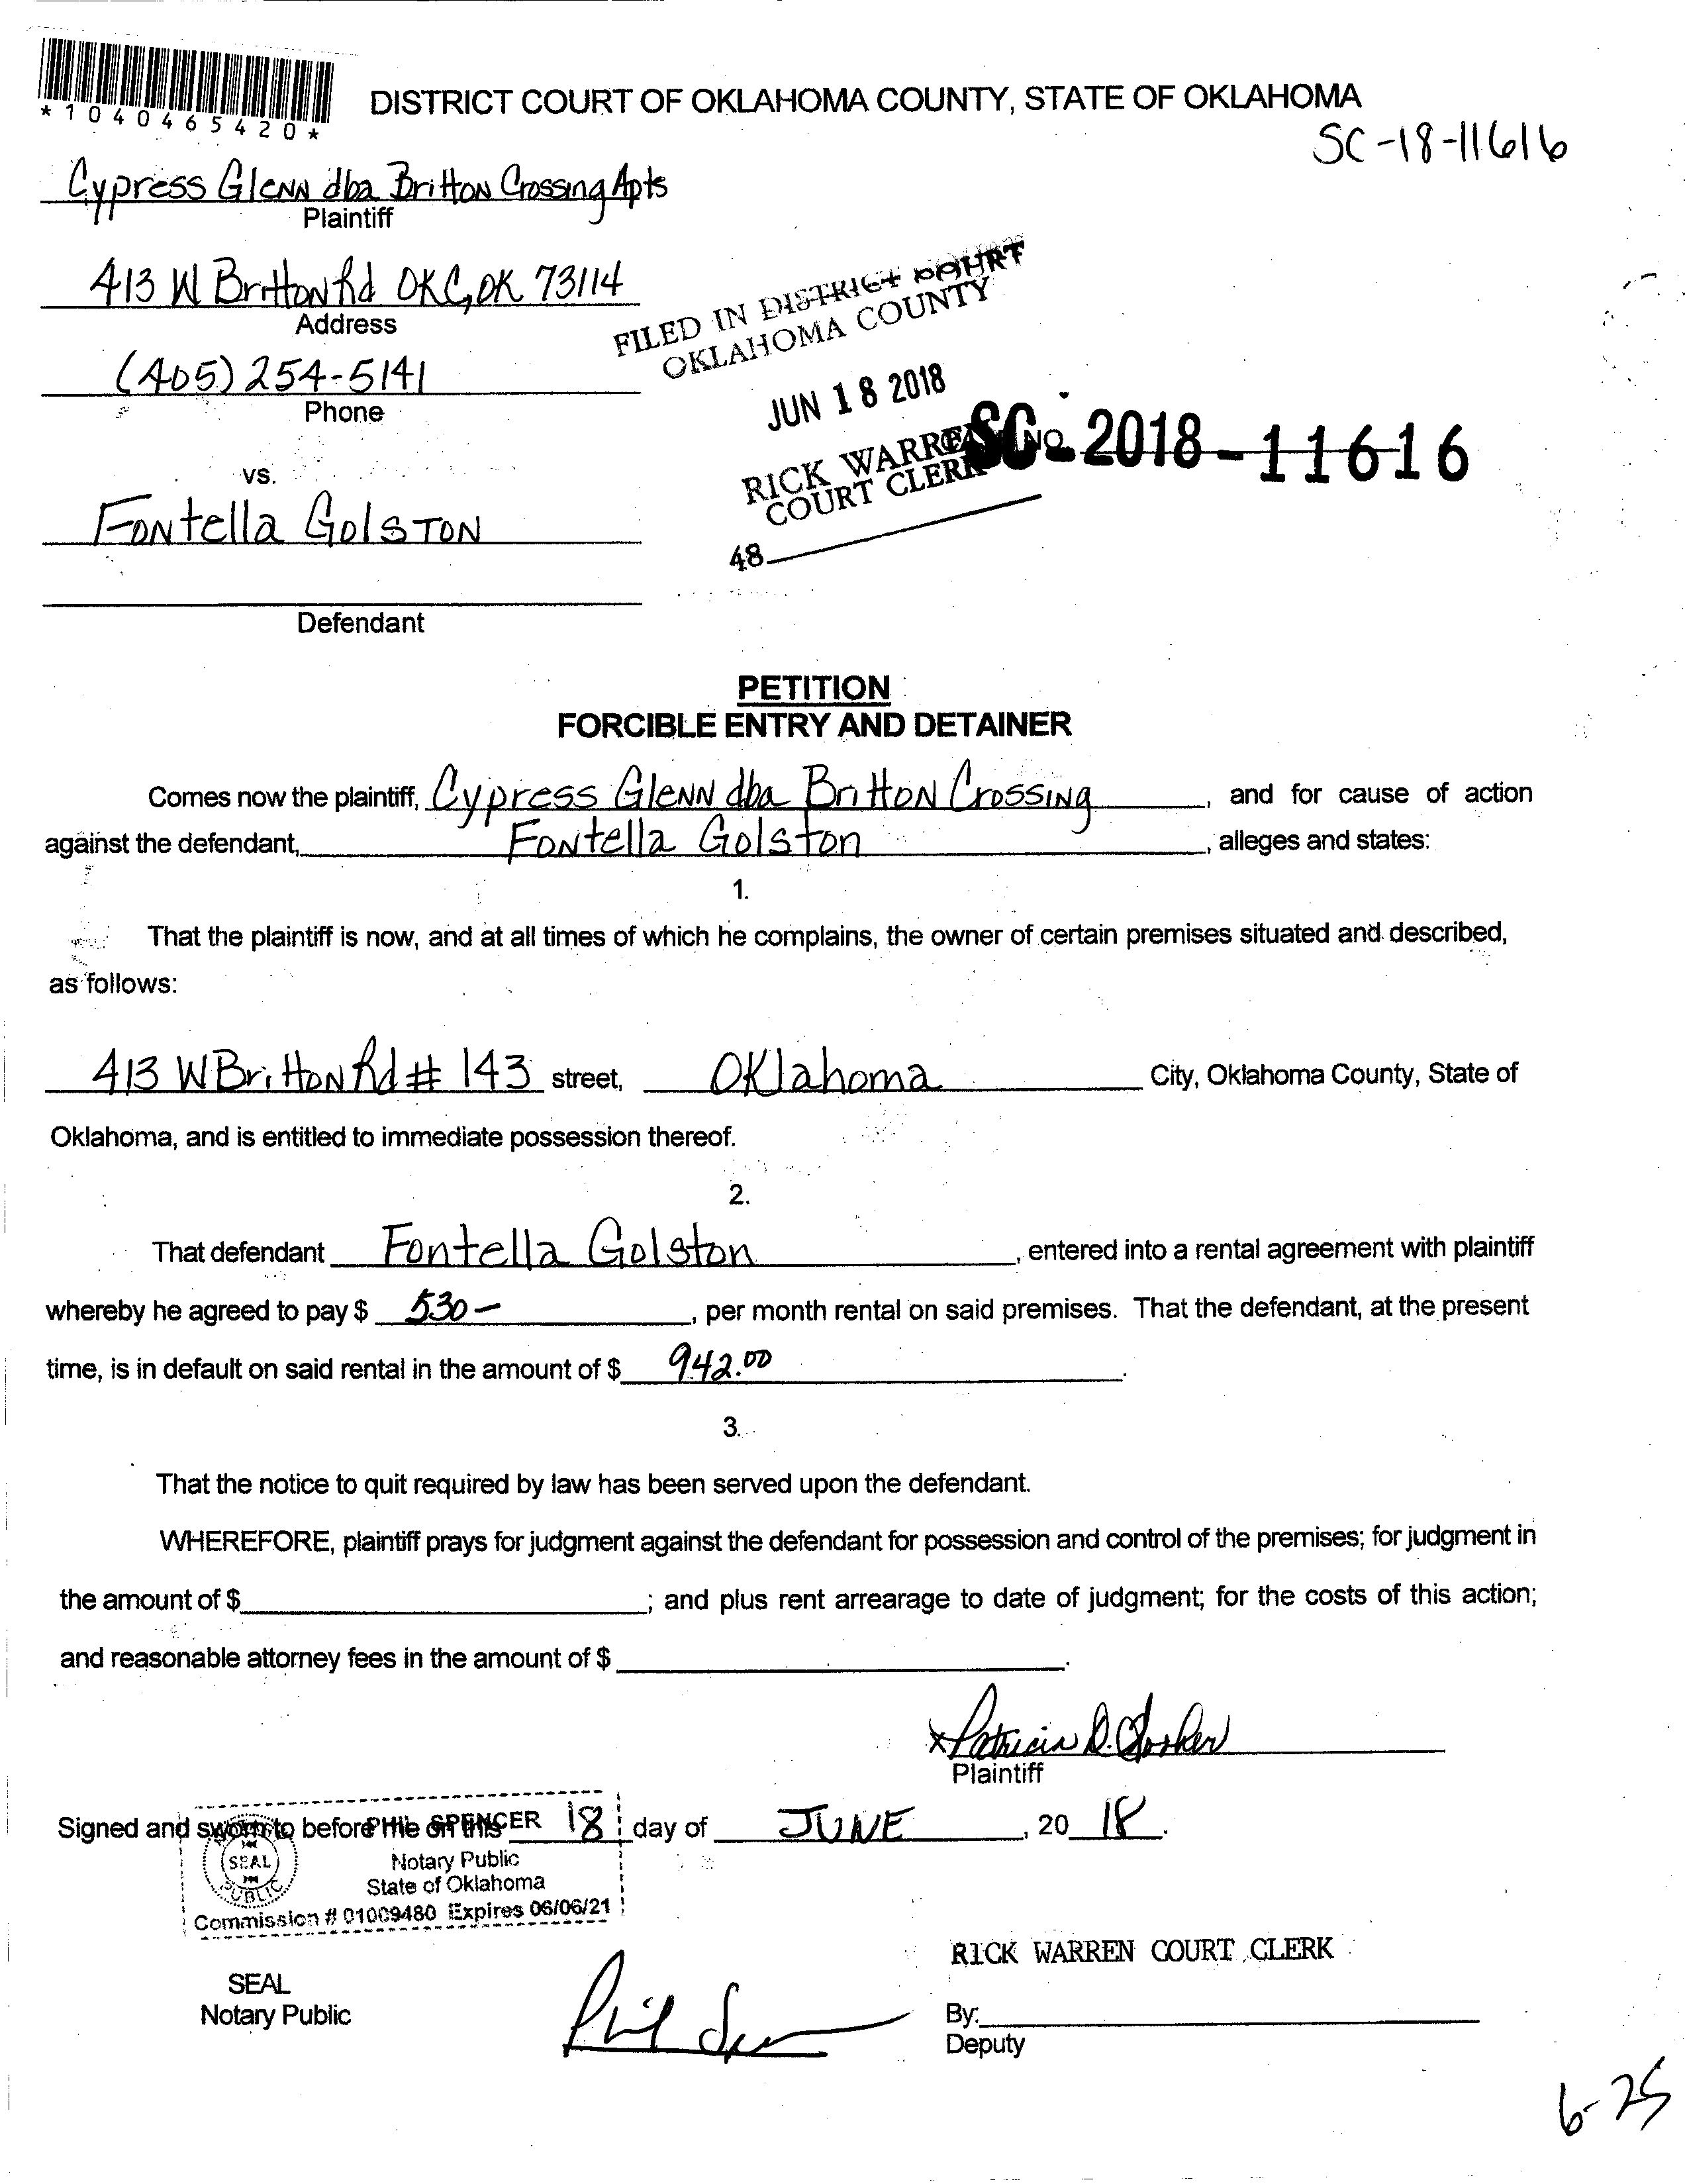 *1040465420*
DISTRICT COURT OF OKLAHOMA COUNTY, STATE OF OKLAHOMA
SC-18-11616
Cypress Glenn dba Britton Crossing Apts
Plaintiff
413 W Britton Rd OKC, OK 73114
Address
(405) 254-5141
Phone
FILED IN DISTRICT COURT
OKLAHOMA COUNTY
JUN 18 2018
RICK WARREN
COURT CLERK
48
SC-2018-11616
vs.
Fontella Golston
Defendant
PETITION
FORCIBLE ENTRY AND DETAINER
Comes now the plaintiff, Cypress Glenn dba Britton Crossing, and for cause of action
against the defendant, Fontella Golston, alleges and states:
1.
That the plaintiff is now, and at all times of which he complains, the owner of certain premises situated and described,
as follows:
413 W Britton Rd # 143 street, Oklahoma City, Oklahoma County, State of
Oklahoma, and is entitled to immediate possession thereof.
2.
That defendant Fontella Golston, entered into a rental agreement with plaintiff
whereby he agreed to pay $ 530-, per month rental on said premises. That the defendant, at the present
time, is in default on said rental in the amount of $ 942.00.
3.
That the notice to quit required by law has been served upon the defendant.
WHEREFORE, plaintiff prays for judgment against the defendant for possession and control of the premises; for judgment in
the amount of $; and plus rent arrearage to date of judgment; for the costs of this action;
and reasonable attorney fees in the amount of $.
x Patricia D.
Plaintiff
Signed and sworn to before me on this 18 day of JUNE, 20 18.
PHIL SPENCER
SEAL
PUBLIC
Notary Public
State of Oklahoma
Commission # 01009480 Expires 06/06/21
RICK WARREN COURT CLERK
SEAL
Notary Public
Phil
By:
Deputy
6-25